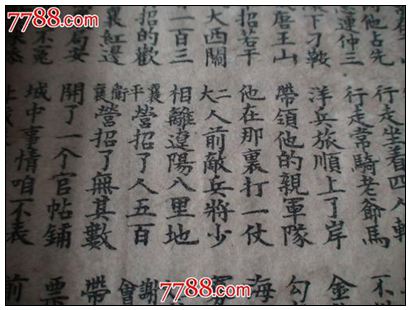 他占先
仲三
下刁鞍
唐王山
招若干
大西關
一百三
招的歡
襄紅邊
行走坐着四人轎
行走常騎老爺馬
洋兵旅順上了岸
帶領他的親軍隊
他在那裏打一仗
大二人前敵兵將少
相離遼陽八里地
平營招了人五百
襄衛營招了無其數
開了一个官帖鋪
城中事情咱不表
不
金
勾
海
謝
帶
票
前
7788.com
7788.com
7788.com
7788.com
7788.com